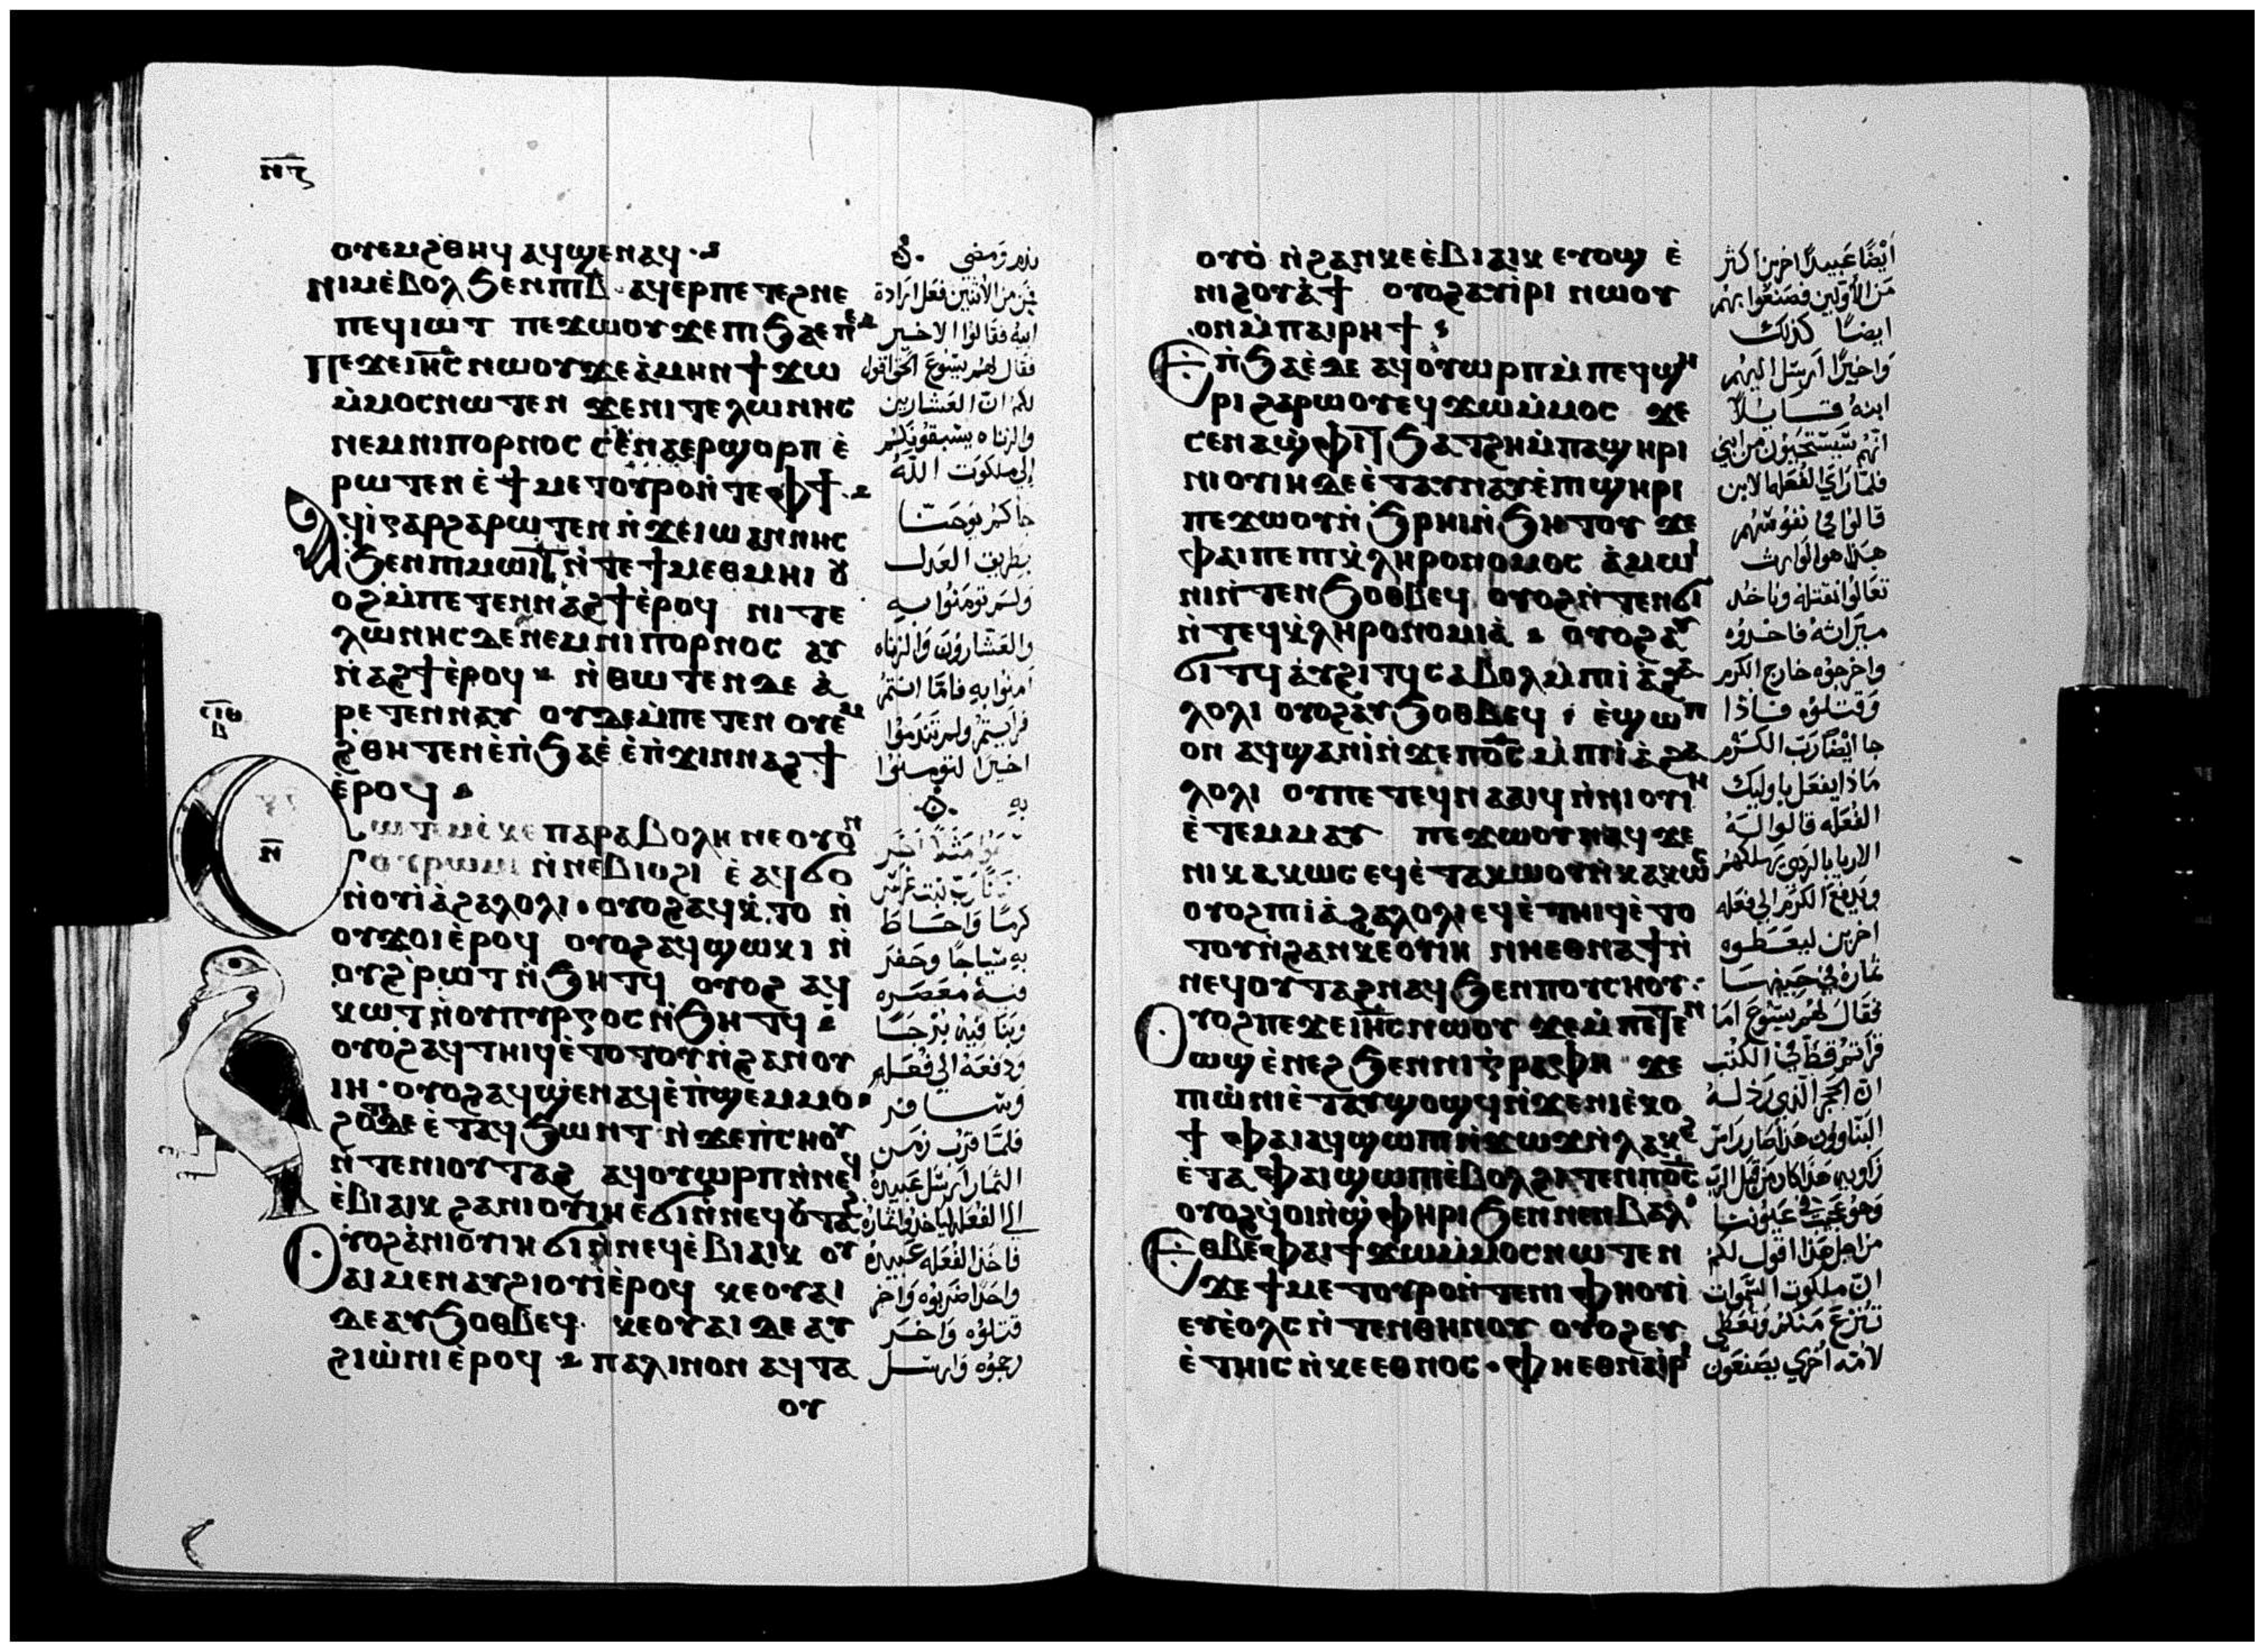 ⲛ̅ⲋ̅
ⲟⲩⲉⲙϩⲑⲏϥ ⲁϥϣⲉⲛⲁϥ
ⲛⲓⲙ ⲉ̀ⲃⲟⲗ ϧⲉⲛ ⲡⲓⲃ̅ ⲁϥⲉⲣ ⲡⲉⲧⲉϩⲛⲉ
ⲡⲉϥⲓⲱⲧ ⲡⲉϫⲱⲟⲩ ϫⲉ ⲡⲓϧⲁⲉ̀
ⲡⲉϫⲉ ⲓⲏ̅ⲥ̅ ⲛⲱⲟⲩ ϫⲉ ⲁ̀ⲙⲏⲛ ϯϫⲱ
ⲙ̀ⲙⲟⲥ ⲛⲱⲧⲉⲛ ϫⲉ ⲛⲓⲧⲉⲗⲱⲛⲏⲥ
ⲛⲉⲙ ⲛⲓⲡⲟⲣⲛⲟⲥ ⲥⲉⲛⲁⲉⲣϣⲟⲣⲡ ⲉ̀
ⲣⲱⲧⲉⲛ ⲉ̀ ϯⲙⲉⲧⲟⲩⲣⲟ ⲛ̀ⲧⲉ ⲫϯ
ⲁϥⲓ̀ ⲅⲁⲣ ϩⲁⲣⲱⲧⲉⲛ ⲛ̀ϫⲉ ⲓⲱⲁⲛⲛⲏⲥ
ϧⲉⲛ ⲡⲓⲙⲱⲓⲧ ⲛ̀ⲧⲉ ϯⲙⲉⲑⲙⲏⲓ ⲟⲩ
ⲟϩ ⲙ̀ⲡⲉⲧⲉⲛⲛⲁϩϯ ⲉ̀ⲣⲟϥ ⲛⲓⲧⲉ
ⲗⲱⲛⲏⲥ ⲇⲉ ⲛⲉⲙ ⲛⲓⲡⲟⲣⲛⲟⲥ ⲁⲩ
ⲛⲁϩϯ ⲉ̀ⲣⲟϥ ⲛ̀ⲑⲱⲧⲉⲛ ⲇⲉ ⲁ̀
ⲣⲉⲧⲉⲛⲛⲁⲩ ⲟⲩⲇⲉ ⲙ̀ⲡⲉⲧⲉⲛ ⲟⲩⲉⲙ
ϩⲑⲏⲧⲉⲛ ⲉ̀ⲡ̀ϧⲁⲉ̀ ⲉ̀ⲡ̀ϫⲓⲛⲛⲁϩϯ
ⲉ̀ⲣⲟϥ
ⲥⲱⲧⲉⲙ ⲉ̀ⲕⲉ ⲡⲁⲣⲁⲃⲟⲗⲏ ⲛⲉ ⲟⲩⲟⲛ
ⲟⲩⲣⲱⲙⲓ ⲛ̀ⲛⲉⲃⲓⲟϩⲓ ⲉ̀ⲁϥϭⲟ
ⲛ̀ⲟⲩⲓ̀ⲁϩⲁⲗⲟⲗⲓ ⲟⲩⲟϩ ⲁϥⲕ̀ⲧⲟ ⲛ̀
ⲟⲩϫⲟⲓ ⲉ̀ⲣⲟϥ ⲟⲩⲟϩ ⲁϥϣⲱⲕⲓ ⲛ̀
ⲟⲩϩ̀ⲣⲱⲧ ⲛ̀ϧⲏⲧϥ ⲟⲩⲟϩ ⲁϥ
ⲕⲱⲧ ⲛ̀ⲟⲩⲡⲩⲣⲅⲟⲥ ⲛ̀ϧⲏⲧϥ
ⲟⲩⲟϩ ⲁϥⲧⲏⲓϥ ⲉ̀ⲧⲟⲧⲟⲩ ⲛ̀ϩⲁⲛⲟⲩ
ⲓⲏ ⲟⲩⲟϩ ⲁϥϣⲉⲛⲁϥ ⲉ̀ⲡ̀ϣⲉⲙⲙⲟ
ϩⲟⲧⲉ ⲇⲉ ⲉ̀ⲧⲁϥϧⲱⲛⲧ ⲛ̀ϫⲉ ⲡ̀ⲥⲛⲟⲩ
ⲛ̀ⲧⲉ ⲛⲓⲟⲩⲧⲁϩ ⲁϥⲟⲩⲱⲣⲡ ⲛ̀ⲛⲉϥ
ⲉ̀ⲃⲓⲁⲓⲕ ϩⲁ ⲛⲓⲟⲩⲓⲏ ⲉ̀ϭⲓ ⲛ̀ⲛⲉϥⲟⲩⲧⲁϩ
ⲟⲩⲟϩ ⲁ̀ ⲛⲓⲟⲩⲓⲏ ϭⲓ ⲛ̀ⲛⲉϥⲉ̀ⲃⲓⲁⲓⲕ ⲟⲩ
ⲁⲓ ⲙⲉⲛ ⲁⲩϩⲓⲟⲩⲓ̀ ⲉ̀ⲣⲟϥ ⲕⲉⲟⲩⲁⲓ
ⲇⲉ ⲁⲩϧⲟⲑⲃⲉϥ ⲕⲉⲟⲩⲁⲓ ⲇⲉ ⲁⲩ
ϩⲓⲱ̀ⲛⲓ ⲉ̀ⲣⲟϥ ⲡⲁⲗⲓⲛ ⲟⲛ ⲁϥⲧⲁ
ⲟⲩ
ⲥ̅ⲓ̅ⲑ̅
ⲃ̅
ⲛ̅
ندم ومضى
فمن من الاثنين فعل ارادة
ابيه فقالوا الاخير
فقال لهم يسوع الحق اقول
لكم ان العشارين
والزناه يسبقونكم
إلى ملكوت الله
جاكم يوحنا
بطريق العدل
ولم تومنوا به
والعشارون والزناه
امنوا به فاما انتم
فرايتم ولم تندموا
اخيرا لتومنوا
به
كرما واحاط
به سياجا وحفر
فيه معصره
وبنا فيه برجا
ودفعه الى فعله
وسافر
فلما قرب زمن
الثمار ارسل عبيده
الى الفعله لياخذوا ثماره
فاخذ الفعله عبيده
واحدا ضربوه واخر
قتلوه واخر
رجموه وارسل
ⲟⲩⲟ̀ ⲛ̀ϩⲁⲛⲕⲉⲉ̀ⲃⲓⲁⲓⲕ ⲉⲩⲟϣ ⲉ̀
ⲛⲓϩⲟⲩⲁ̀ϯ ⲟⲩⲟϩ ⲁⲩⲓ̀ⲣⲓ ⲛⲱⲟⲩ
ⲟⲛ ⲙ̀ⲡⲁⲓⲣⲏϯ
ⲉⲡ̀ϧⲁⲉ̀ ⲇⲉ ⲁϥⲟⲩⲱⲣⲡ ⲙ̀ⲡⲉϥϣⲏ
ⲣⲓ ϩⲁⲣⲱⲟⲩ ⲉϥϫⲱ ⲙ̀ⲙⲟⲥ ϫⲉ
ⲥⲉⲛⲁϣⲫⲓⲧ ϧⲁⲧϩⲏ ⲙ̀ⲡⲁϣⲏⲣⲓ
ⲛⲓⲟⲩⲓⲏ ⲇⲉ ⲉ̀ⲧⲁⲩⲛⲁⲩ ⲉ̀ⲡⲓϣⲏⲣⲓ
ⲡⲉϫⲱⲟⲩ ⲛ̀ϧⲣⲏⲓ ⲛ̀ϧⲏⲧⲟⲩ ϫⲉ
ⲫⲁⲓ ⲡⲉ ⲡⲓⲕ̀ⲗⲏⲣⲟⲛⲟⲙⲟⲥ ⲁ̀ⲙⲱⲓ
ⲛⲓ ⲛ̀ⲧⲉⲛϧⲟⲑⲃⲉϥ ⲟⲩⲟϩ ⲛ̀ⲧⲉⲛϭⲓ
ⲛ̀ⲧⲉϥⲕ̀ⲗⲏⲣⲟⲛⲟⲙⲓⲁ̀ ⲟⲩⲟϩ ⲁⲩ
ϭⲓⲧϥ ⲁⲩϩⲓⲧϥ ⲥⲁⲃⲟⲗ ⲙ̀ⲡⲓⲓ̀ⲁϩⲁ
ⲗⲟⲗⲓ ⲟⲩⲟϩ ⲁⲩϧⲟⲑⲃⲉϥ ⲉ̀ϣⲱⲡ
ⲟⲛ ⲁϥϣⲁⲛⲓ̀ ⲛ̀ϫⲉ ⲡⲟ̅ⲥ̅ ⲙ̀ⲡⲓⲓ̀ⲁϩⲁ
ⲗⲟⲗⲓ ⲟⲩ ⲡⲉⲧⲉϥⲛⲁⲁⲓϥ ⲛ̀ⲛⲓⲟⲩⲓⲏ
ⲉ̀ⲧⲉⲙⲙⲁⲩ ⲡⲉϫⲱⲟⲩ ⲛⲁϥ ϫⲉ
ⲛⲓⲕⲁⲕⲱⲥ ⲉϥⲉ̀ⲧⲁⲕⲱⲟⲩ ⲛ̀ⲕⲁⲕⲱⲥ
ⲟⲩⲟϩ ⲡⲓⲓ̀ⲁϩⲁⲗⲟⲗⲓ ⲉϥⲉ̀ⲧⲏⲓϥ ⲉ̀ⲧⲟ
ⲧⲟⲩ ⲛ̀ϩⲁⲛⲕⲉⲟⲩⲓⲏ ⲛⲏ ⲉⲑⲛⲁϯ ⲛ̀
ⲛⲉϥⲟⲩⲧⲁϩ ⲛⲁϥ ϧⲉⲛ ⲡⲟⲩⲥⲏⲟⲩ
ⲟⲩⲟϩ ⲡⲉϫⲉ ⲓⲏ̅ⲥ̅ ⲛⲱⲟⲩ ϫⲉ ⲙ̀ⲡⲉⲧⲉⲛ
ⲱϣ ⲉ̀ⲛⲉϩ ϧⲉⲛ ⲛⲓⲅ̀ⲣⲁⲫⲏ ϫⲉ
ⲡⲓⲱ̀ⲛⲓ ⲉ̀ⲧⲁⲩϣⲟϣϥ ⲛ̀ϫⲉ ⲛⲓⲉ̀ⲕⲟ
ϯ ⲫⲁⲓ ⲁϥϣⲱⲡⲓ ⲛ̀ϫⲱϫ ⲛ̀ⲗⲁⲕϩ
ⲉ̀ⲧⲁ ⲫⲁⲓ ϣⲱⲡⲓ ⲉ̀ⲃⲟⲗ ϩⲓⲧⲉⲛ ⲡⲟ̅ⲥ̅
ⲟⲩⲟϩ ϥ̀ⲟⲓ ⲛ̀ϣ̀ⲫⲏⲣⲓ ϧⲉⲛ ⲛⲉⲛⲃⲁⲗ
ⲉⲑⲃⲉ ⲫⲁⲓ ϯϫⲱ ⲙ̀ⲙⲟⲥ ⲛⲱⲧⲉⲛ
ϫⲉ ϯⲙⲉⲧⲟⲩⲣⲟ ⲛ̀ⲧⲉ ⲛⲓⲫⲏⲟⲩⲓ̀
ⲉⲩⲉ̀ⲟⲗⲥ ⲛ̀ⲧⲉⲛ ⲑⲏⲛⲟⲩ ⲟⲩⲟϩ ⲉⲩ
ⲉ̀ⲧⲏⲓⲥ ⲛ̀ⲕⲉⲉⲑⲛⲟⲥ ⲫⲏ ⲉⲑⲛⲁⲓⲣⲓ
أيضا عبيدا اخرين اكثر
من الأولين فصنعوا بهم
ايضا كذلك
واخيرا ارسل اليهم
ابنه قايلا
انهم سيستحيون من ابني
فلما راي الفعله الابن
قالوا في نفوسهم
هذا هو الوارث
تعالوا نقتله وناخذ
ميراثه فاخذوه
واخرجوه خارج الكرم
وقتلوه فاذا
جا أيضا رب الكرم
ماذا يفعل باوليك
الفعله قالوا له
الارديا بالردي يهلكهم
ويدفع الكرم الى فعله
اخرين ليعطوه
ثماره في حينها
فقال لهم يسوع اما
قراتم قط في الكتب
ان الحجر الذي رذله
البناوون هذا صار راس
زاويه هذا كان من قبل الرب
وهو عجيب في عيوننا
من اجل هذا اقول لكم
ان ملكوت السموات
تنزع منكم وتعطى
لأمه أخرى يصنعون